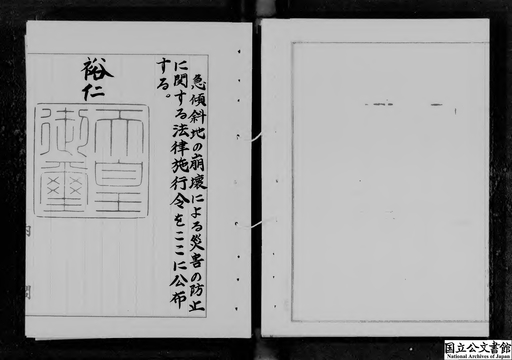 急傾斜地の崩壊による災害の防止
に関する法律施行令をここに公布
する。
裕仁
天皇
御璽
内閣
国立公文書館
National Archives of Japan